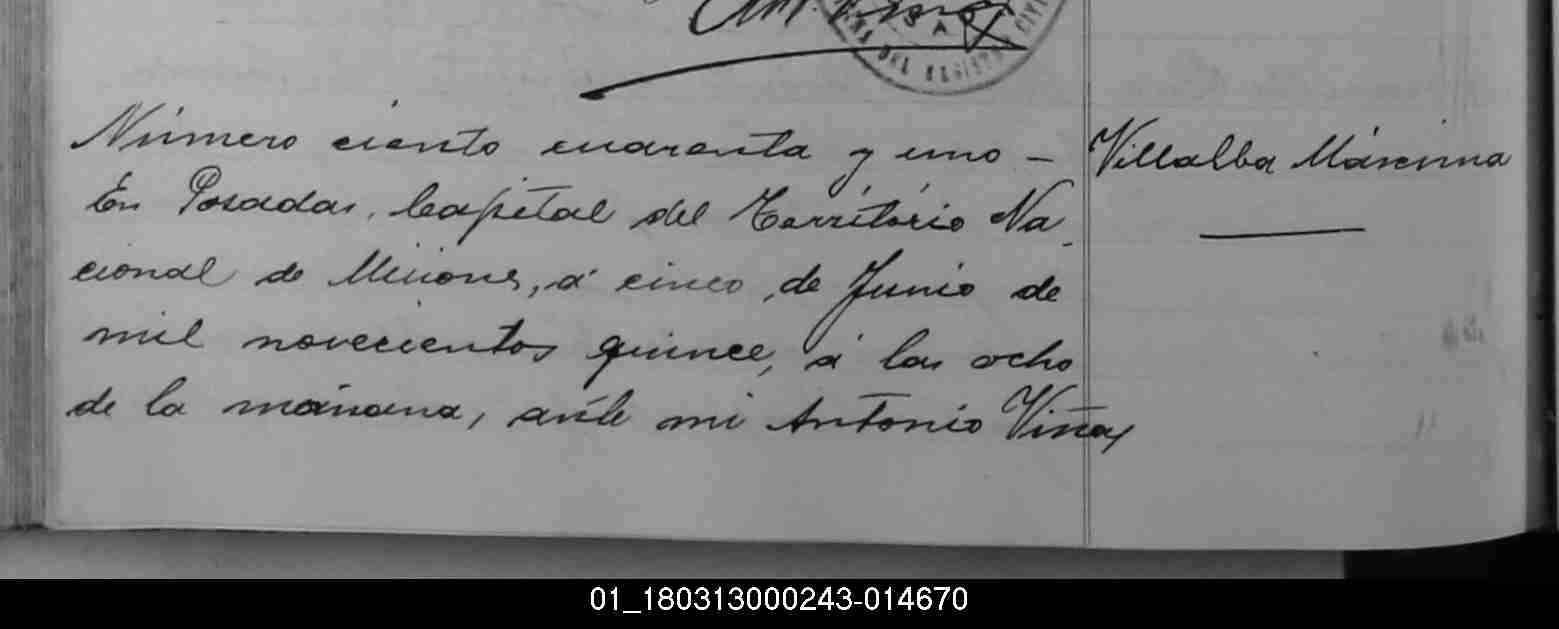 Número ciento cuarenta y uno –
En Posadas, Capital del Território Na-
cional de Misiones, á cinco, de Junio de
mil novecientos quince, á las ocho
de la mañana, ante mi Antonio Viñas
Villalba Máxima
DEL REGISTRO CIVIL
01_180313000243-014670